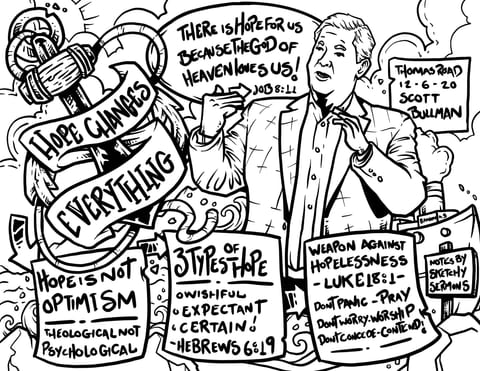 THERE IS HOPE FOR US
BECAUSE THE GOD OF
HEAVEN LOVES US!
JOB 8:11
THOMAS ROAD
12-6-20
SCOTT
BULLMAN
HOPE CHANGES
EVERYTHING
HOPE IS NOT
OPTIMISM
THEOLOGICAL NOT
PSYCHOLOGICAL
3 TYPES OF HOPE
O WISHFUL
O EXPECTANT
O CERTAIN!
-HEBREWS 6:19
WEAPON AGAINST
HOPELESSNESS
-LUKE 18:1-
DON'T PANIC-PRAY
DON'T WORRY-WORSHIP
DON'T CONCEDE-CONTEND!
NOTES BY
SKETCHY
SERMONS